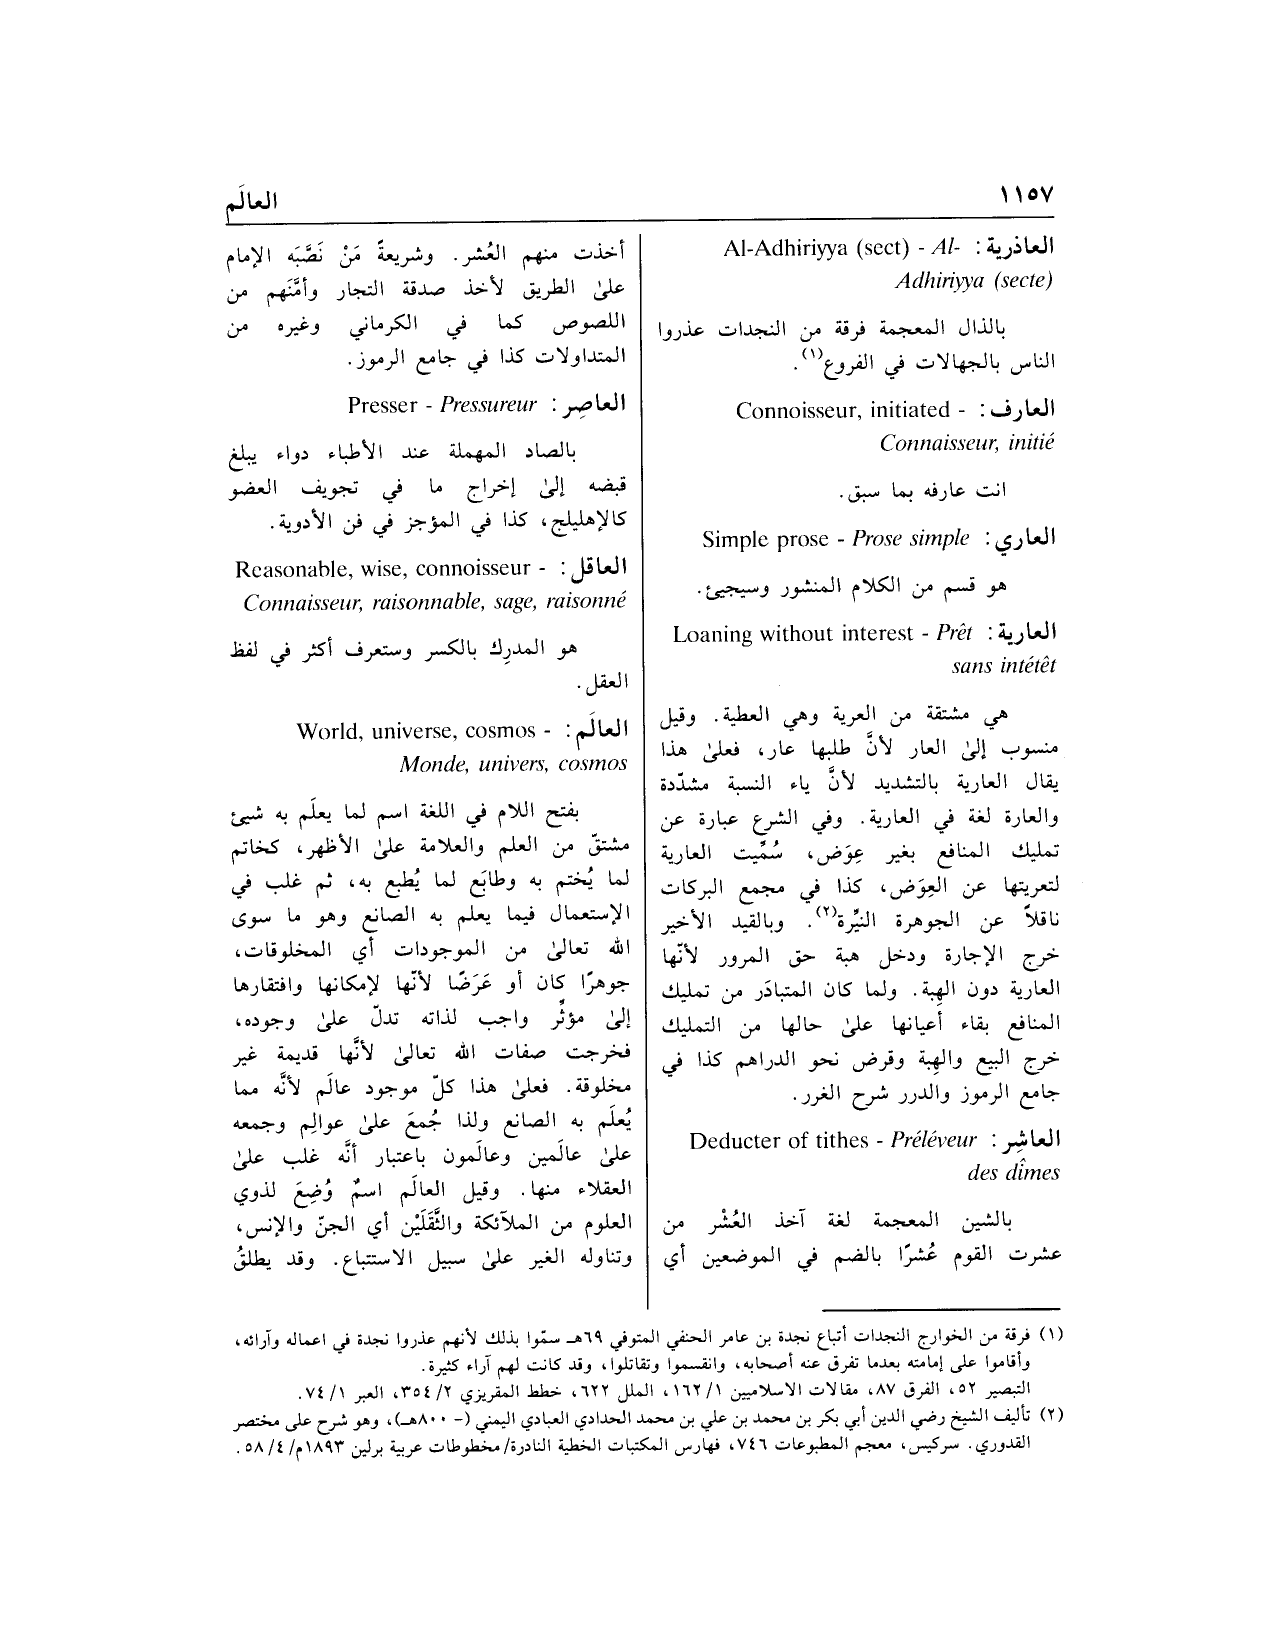 ١١٥٧
العالَم
العاذرية: Al-Adhiriyya (sect) - Al-
Adhiriyya (secte)
بالذال المعجمة فرقة من النجدات عذروا
الناس بالجهالات في الفروع(١).
العارف: Connoisseur, initiated -
Connaisseur, initié
انت عارفه بما سبق.
العاري: Simple prose - Prose simple
هو قسم من الكلام المنثور وسيجيئ.
العارية: Loaning without interest - Prêt
sans intétêt
هي مشتقة من العرية وهي العطية. وقيل
منسوب إلىٰ العار لأنَّ طلبها عار، فعلىٰ هذا
يقال العارية بالتشديد لأنَّ ياء النسبة مشدّدة
والعارة لغة في العارية. وفي الشرع عبارة عن
تمليك المنافع بغير عِوَض، سُمِّيت العارية
لتعريتها عن العِوَض، كذا في مجمع البركات
ناقلاً عن الجوهرة النيِّرة(٢). وبالقيد الأخير
خرج الإجارة ودخل هبة حق المرور لأنّها
العارية دون الهِبة. ولما كان المتبادَر من تمليك
المنافع بقاء أعيانها علىٰ حالها من التمليك
خرج البيع والهِبة وقرض نحو الدراهم كذا في
جامع الرموز والدرر شرح الغرر.
العاشِر: Deducter of tithes - Préléveur
des dîmes
بالشين المعجمة لغة آخذ العُشْر من
عشرت القوم عُشرًا بالضم في الموضعين أي
أخذت منهم العُشر. وشريعةً مَنْ نَصَّبَه الإمام
علىٰ الطريق لأخذ صدقة التجار وأمَّنَهم من
اللصوص كما في الكرماني وغيره من
المتداولات كذا في جامع الرموز.
العاصِر: Presser - Pressureur
بالصاد المهملة عند الأطباء دواء يبلغ
قبضه إلىٰ إخراج ما في تجويف العضو
كالإهليلج، كذا في المؤجز في فن الأدوية.
العاقل: Reasonable, wise, connoisseur -
Connaisseur, raisonnable, sage, raisonné
هو المدرِك بالكسر وستعرف أكثر في لفظ
العقل.
العالَم: World, universe, cosmos -
Monde, univers, cosmos
بفتح اللام في اللغة اسم لما يعلَم به شيئ
مشتقّ من العلم والعلامة علىٰ الأظهر، كخاتم
لما يُختم به وطابَع لما يُطبع به، ثم غلب في
الإستعمال فيما يعلم به الصانع وهو ما سوى
الله تعالىٰ من الموجودات أي المخلوقات،
جوهرًا كان أو عَرَضًا لأنّها لإمكانها وافتقارها
إلىٰ مؤثِّر واجب لذاته تدلّ علىٰ وجوده،
فخرجت صفات الله تعالىٰ لأنَّها قديمة غير
مخلوقة. فعلىٰ هذا كلّ موجود عالَم لأنَّه مما
يُعلَم به الصانع ولذا جُمعَ علىٰ عوالِم وجمعه
علىٰ عالَمين وعالَمون باعتبار أنَّه غلب علىٰ
العقلاء منها. وقيل العالَم اسمٌ وُضِعَ لذوي
العلوم من الملآئكة والثَّقَلَيْن أي الجنّ والإنس،
وتناوله الغير علىٰ سبيل الاستتباع. وقد يطلقُ
(١) فرقة من الخوارج النجدات أتباع نجدة بن عامر الحنفي المتوفي ٦٩هـ سمّوا بذلك لأنهم عذروا نجدة في اعماله وآرائه،
وأقاموا على إمامته بعدما تفرق عنه أصحابه، وانقسموا وتقاتلوا، وقد كانت لهم آراء كثيرة.
التبصير ٥٢، الفرق ٨٧، مقالات الاسلاميين ١/ ١٦٢، الملل ٦٢٢، خطط المقريزي ٢/ ٣٥٤، العبر ١/ ٧٤.
(٢) تأليف الشيخ رضي الدين أبي بكر بن محمد بن علي بن محمد الحدادي العبادي اليمني (- ٨٠٠هـ)، وهو شرح على مختصر
القدوري. سركيس، معجم المطبوعات ٧٤٦، فهارس المكتبات الخطية النادرة/ مخطوطات عربية برلين ١٨٩٣م/ ٤/ ٥٨.